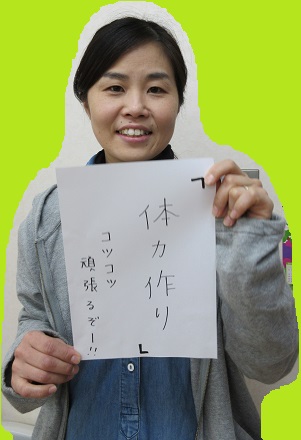 体力作り
コツコツ
頑張るぞー!!